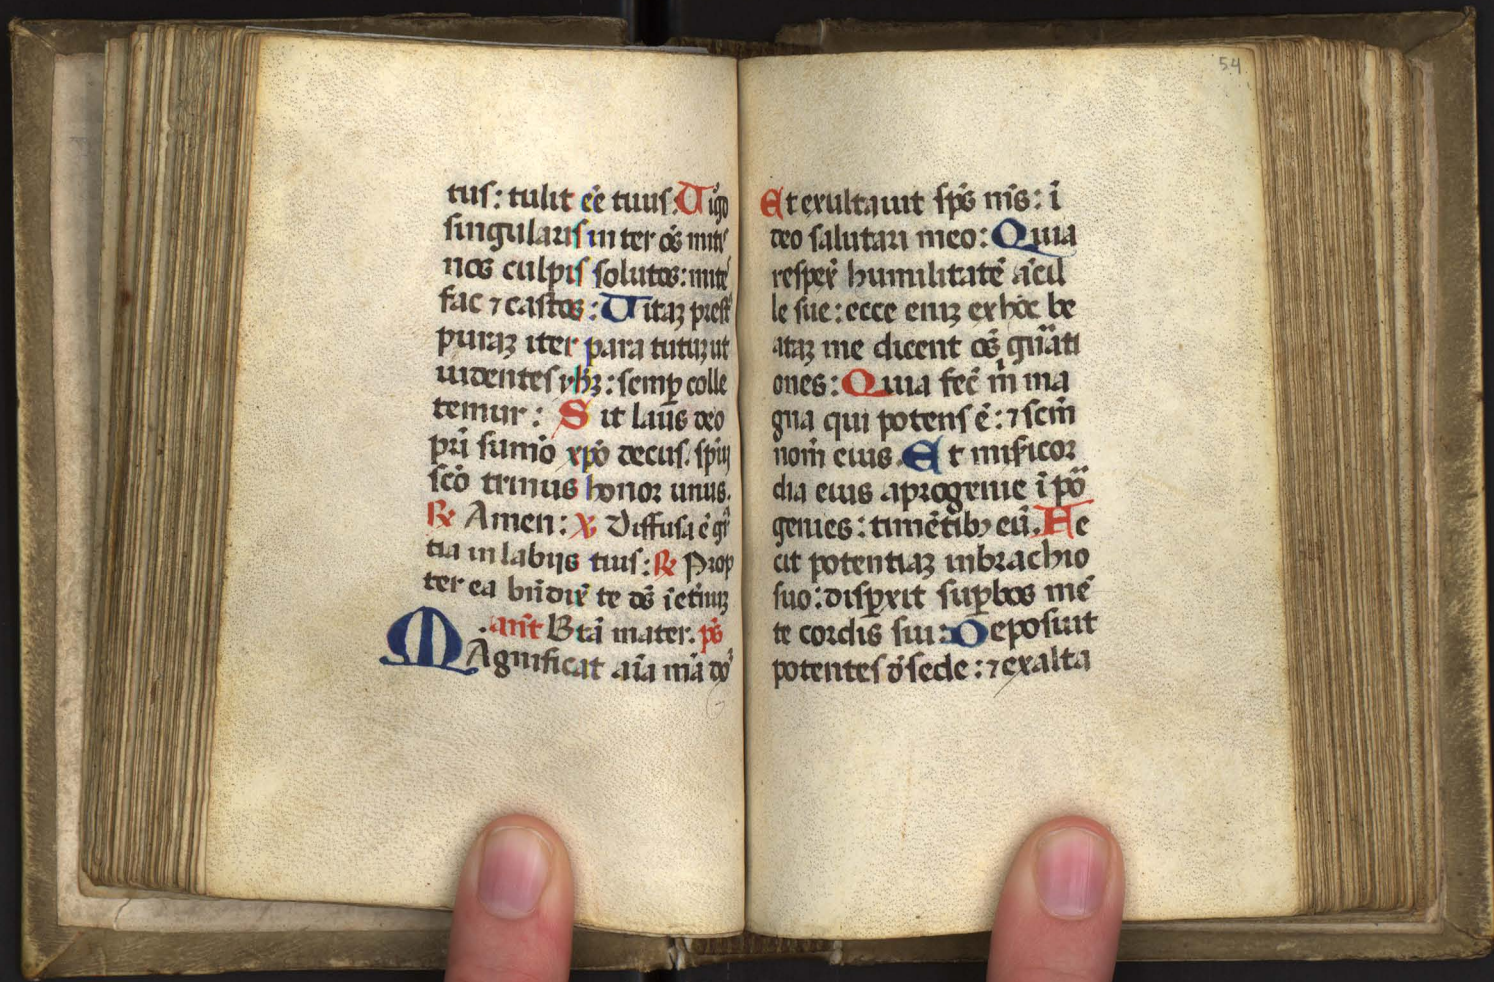 tus: tulit eē tuus: Uigo
singularis inter oēs miti
nos culpis solutos: mites
fac ⁊ castos: Uitaꝫ prest
puraꝫ iter para tutuꝫ ut
uidentes yhꝫ: semꝑ colle
temur: Sit laus deo
pri sumō xpō decus. spui
scō trinus honor unus.
℟ Amen: ℣ Diffusa ē gr̄
tia in labijs tuis: ℟ Prop
ter ea bn̄dix̄ te ds̄ ī eternuꝫ
.an̄t Btā mater. ps̄
Magnificat aīa mā do
54
Et exultauit sps̄ ms̄: ī
deo salutari meo: Quia
respex̄ humilitatē ācil
le sue: ecce eniꝫ ex hōc be
ataꝫ me dicent oēs gn̄ati
ones: Quia fec̄ m̄ ma
gna qui potens ē: ⁊ scm̄
nom̄ eius. Et mīsicor
dia eius a progenie ī po
genies: timētibꝫ eū. Fe
cit potentiaꝫ in brachio
suo: dispexit suꝑbos mē
te cordis sui: Deposuit
potentes d̄ sede: ⁊ exalta